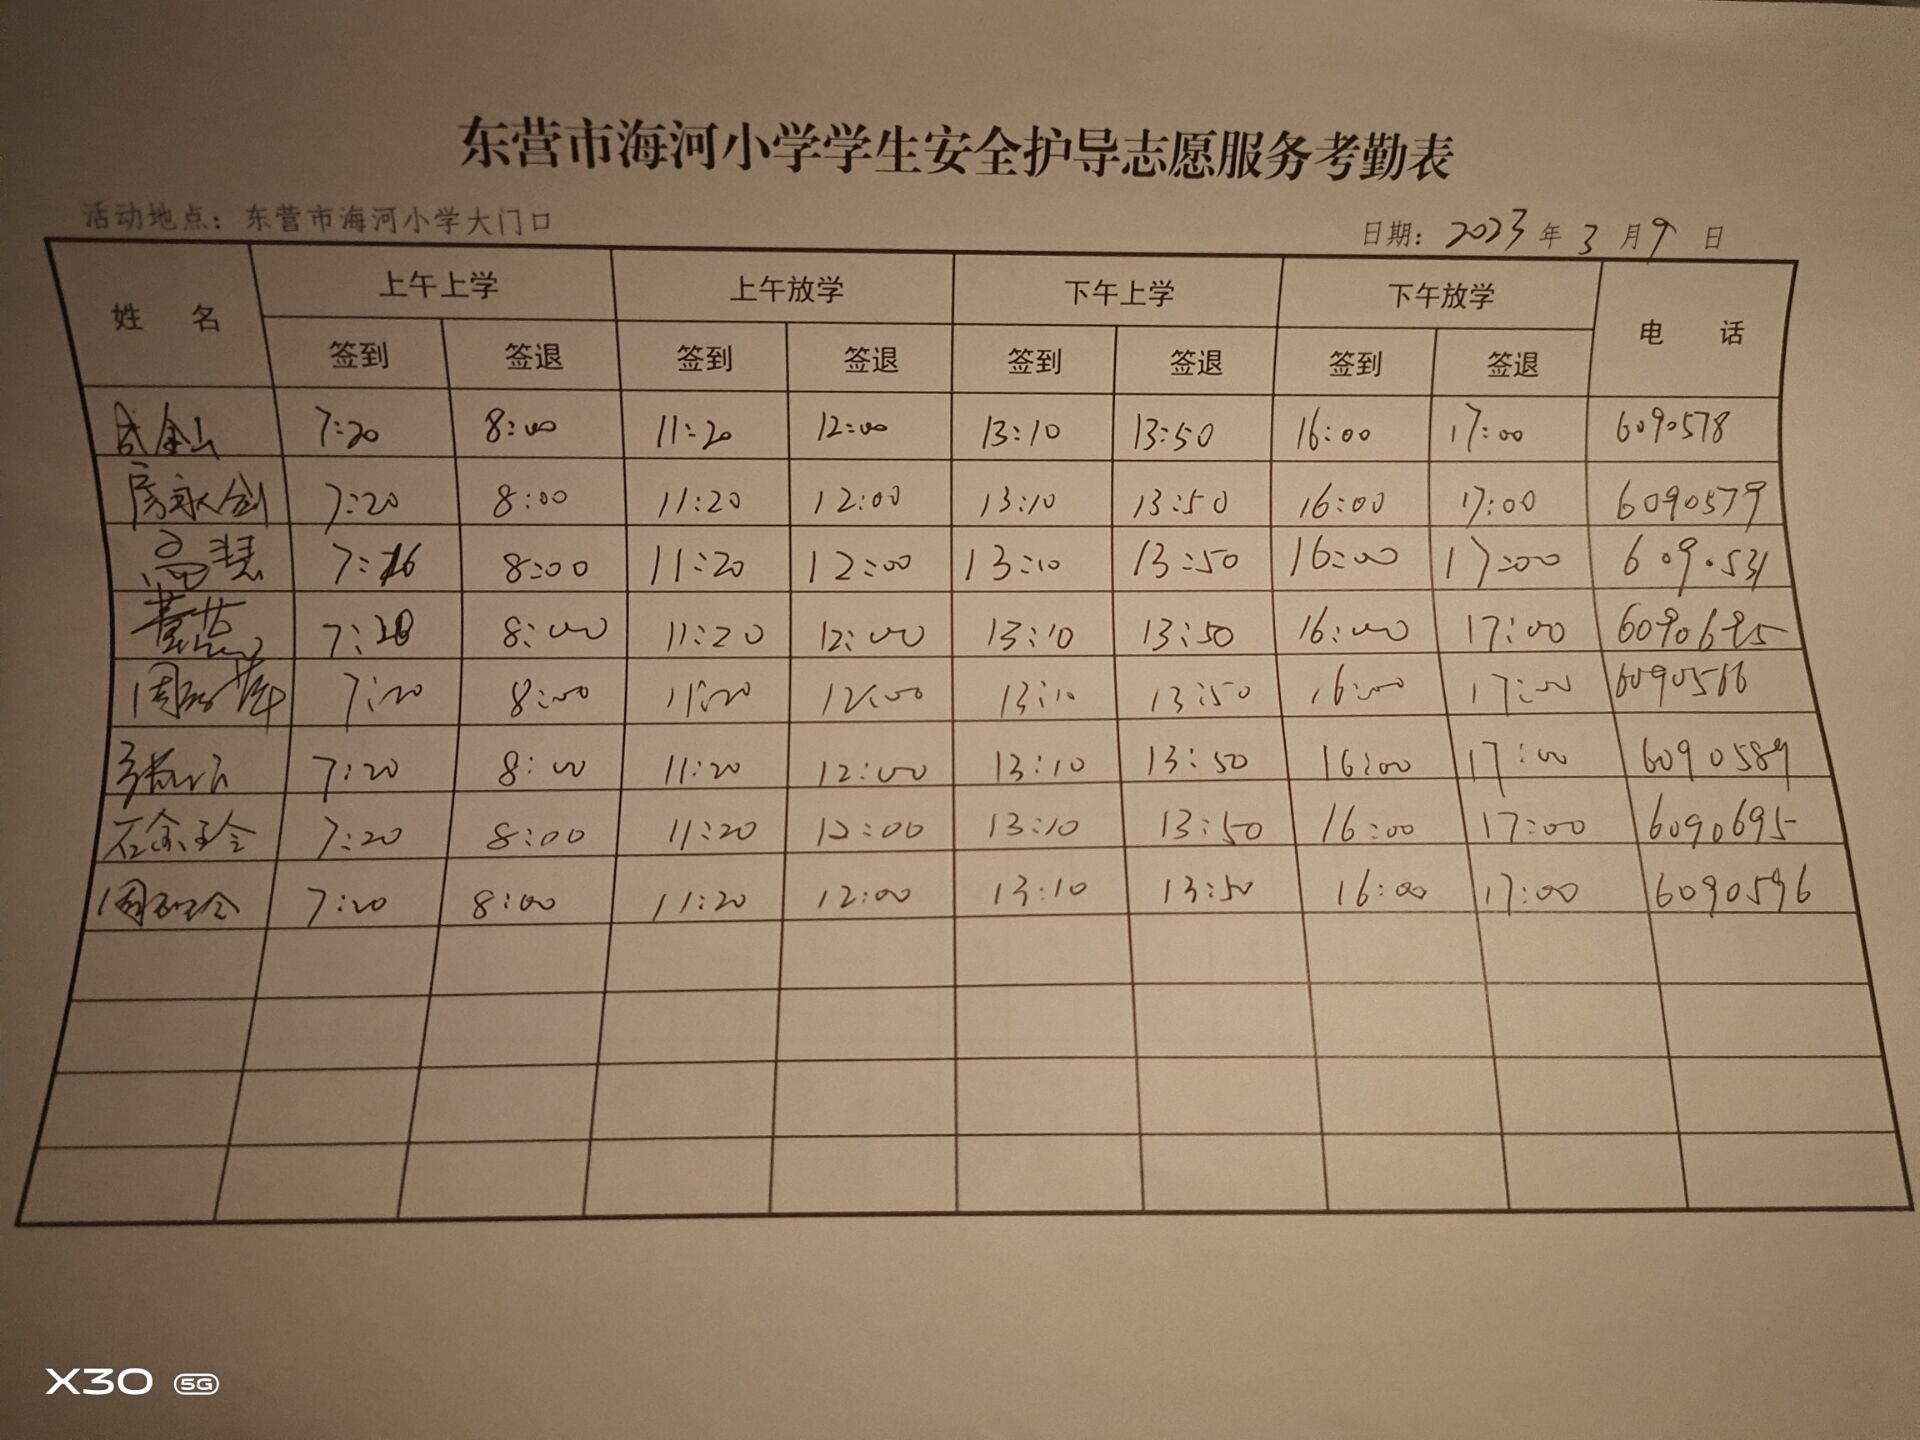 东营市海河小学学生安全护导志愿服务考勤表
活动地点：东营市海河小学大门口 日期：2023年3月9日
姓 名 上午上学 上午放学 下午上学 下午放学 电 话
签到 签退 签到 签退 签到 签退 签到 签退
7:20 8:00 11:20 12:00 13:10 13:50 16:00 17:00 6090578
房永剑 7:20 8:00 11:20 12:00 13:10 13:50 16:00 17:00 6090579
高慧 8:00 11:20 12:00 13:10 13:50 16:00 17:00 6090531
8:00 11:20 12:00 13:10 13:50 16:00 17:00 6090695
7:20 8:00 11:20 12:00 13:10 13:50 16:00 17:00 6090566
7:20 8:00 11:20 12:00 13:10 13:50 16:00 17:00 6090589
7:20 8:00 11:20 12:00 13:10 13:50 16:00 17:00 6090695
7:20 8:00 11:20 12:00 13:10 13:50 16:00 17:00 6090596
X30 5G